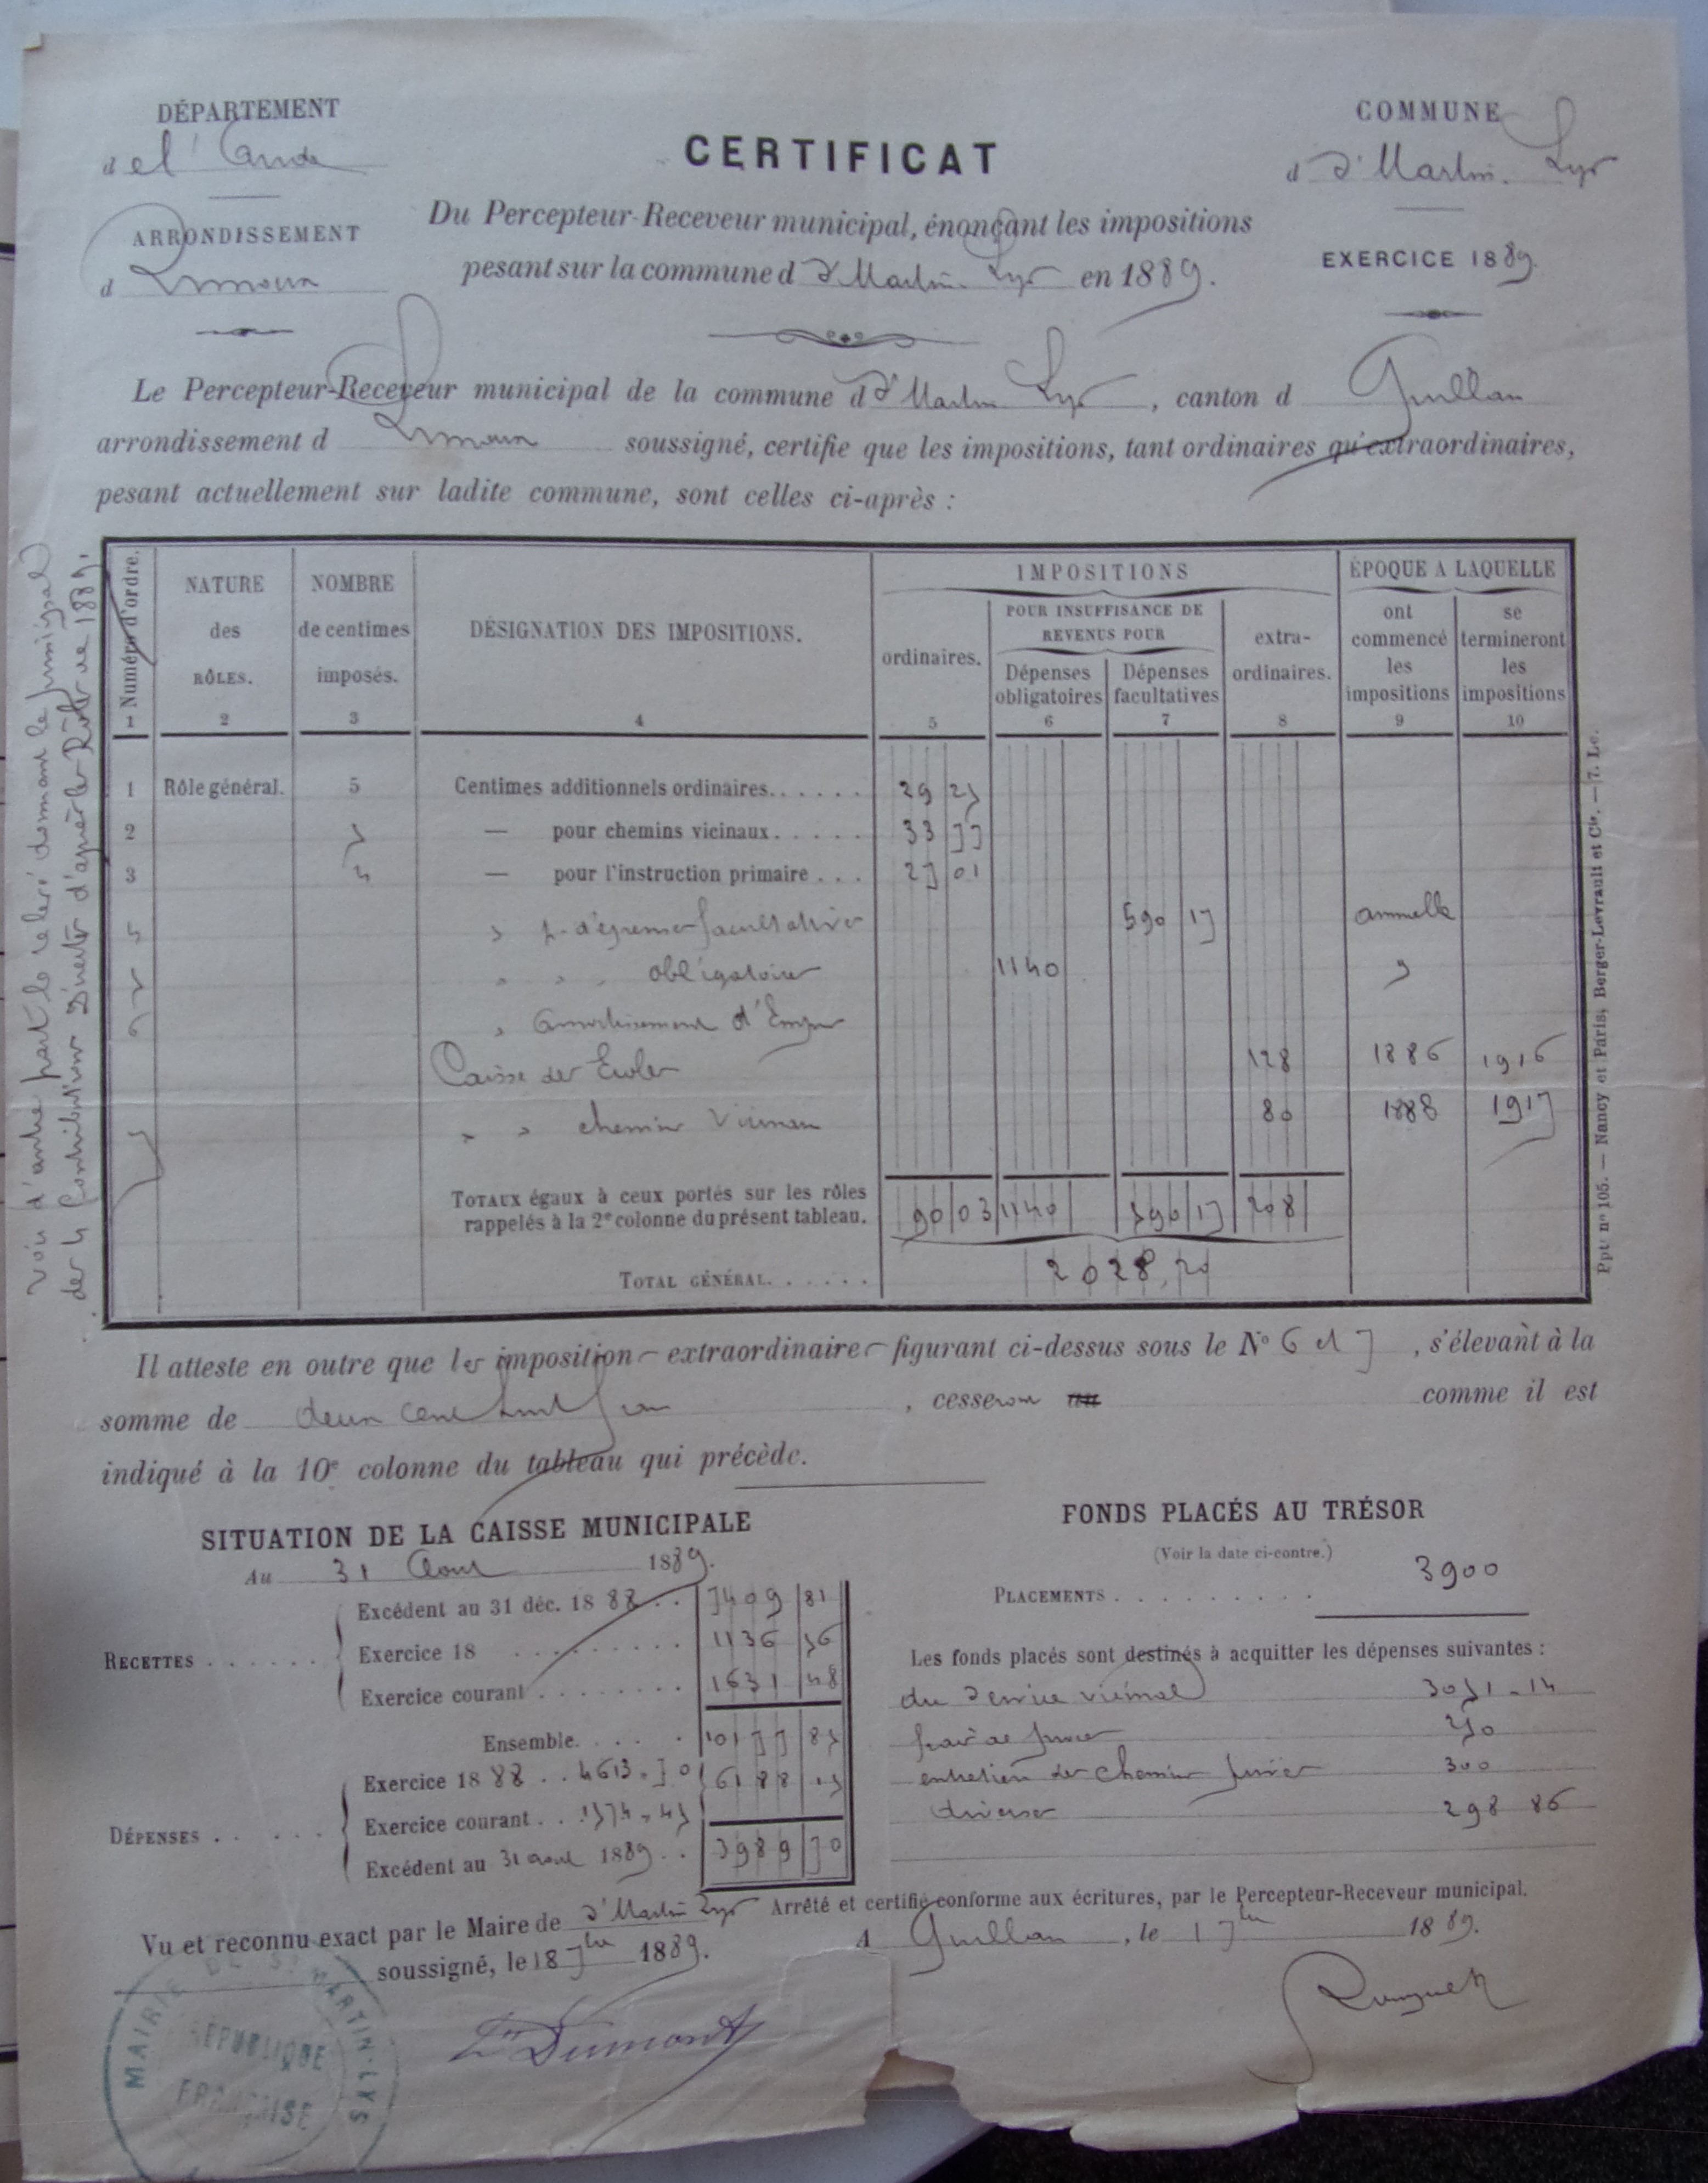 DÉPARTEMENT
de l'Aude
ARRONDISSEMENT
d Limoux
CERTIFICAT
Du Percepteur-Receveur municipal, énonçant les impositions
pesant sur la commune d St Martin-Lys en 1889.
COMMUNE
d St Martin-Lys
EXERCICE 1889.
Le Percepteur-Receveur municipal de la commune d St Martin Lys, canton d Quillan
arrondissement d Limoux soussigné, certifie que les impositions, tant ordinaires qu'extraordinaires,
pesant actuellement sur ladite commune, sont celles ci-après :
Voir d'autre part le relevé donnant le principal
des 4 Contributions Directes d'après les Rôles de 1889.
Numéro d'ordre. NATURE des RÔLES. NOMBRE de centimes imposés. DÉSIGNATION DES IMPOSITIONS. IMPOSITIONS ÉPOQUE A LAQUELLE
ordinaires. POUR INSUFFISANCE DE REVENUS POUR extra-ordinaires. ont commencé les impositions se termineront les impositions
Dépenses obligatoires Dépenses facultatives
1 2 3 4 5 6 7 8 9 10
1 Rôle général. 5 Centimes additionnels ordinaires...... 29 25
2 5 — pour chemins vicinaux..... 33 77
3 4 — pour l'instruction primaire... 27 01
4 " p. dépenses facultatives 590 17 annuelle
5 " " " obligatoires 1140 "
6 " Amortissement d'Empr
Caisse des Ecoles 128 1886 1916
7 " " chemins vicinaux 80 1888 1917
TOTAUX égaux à ceux portés sur les rôles
rappelés à la 2e colonne du présent tableau. 90 03 1140 590 17 208
TOTAL GÉNÉRAL...... 2028,20
Ppt: n° 105. — Nancy et Paris, Berger-Levrault et Cie. — 7. Lc.
Il atteste en outre que les impositions extraordinaires figurant ci-dessus sous le N° 6 et 7, s'élevant à la
somme de deux cent huit francs, cesseront comme il est
indiqué à la 10e colonne du tableau qui précède.
SITUATION DE LA CAISSE MUNICIPALE
Au 31 Aout 1889.
RECETTES......
Excédent au 31 déc. 1888.. 7409 81
Exercice 18 ......... 1136 56
Exercice courant........ 1631 48
Ensemble..... 10177 85
DÉPENSES......
Exercice 1888.. 4613.70 6188 15
Exercice courant... 1574.45
Excédent au 31 aout 1889.. 3989 70
FONDS PLACÉS AU TRÉSOR
(Voir la date ci-contre.)
PLACEMENTS......... 3900
Les fonds placés sont destinés à acquitter les dépenses suivantes :
du Service vicinal 3051.14
250
entretien des chemins 300
diverses 298 86
Vu et reconnu exact par le Maire de St Martin Lys
soussigné, le 18 7bre 1889.
Arrêté et certifié conforme aux écritures, par le Percepteur-Receveur municipal.
A Quillan, le 17 7bre 1889.
Dumont
MAIRIE DE ST MARTIN-LYS
RÉPUBLIQUE
FRANÇAISE